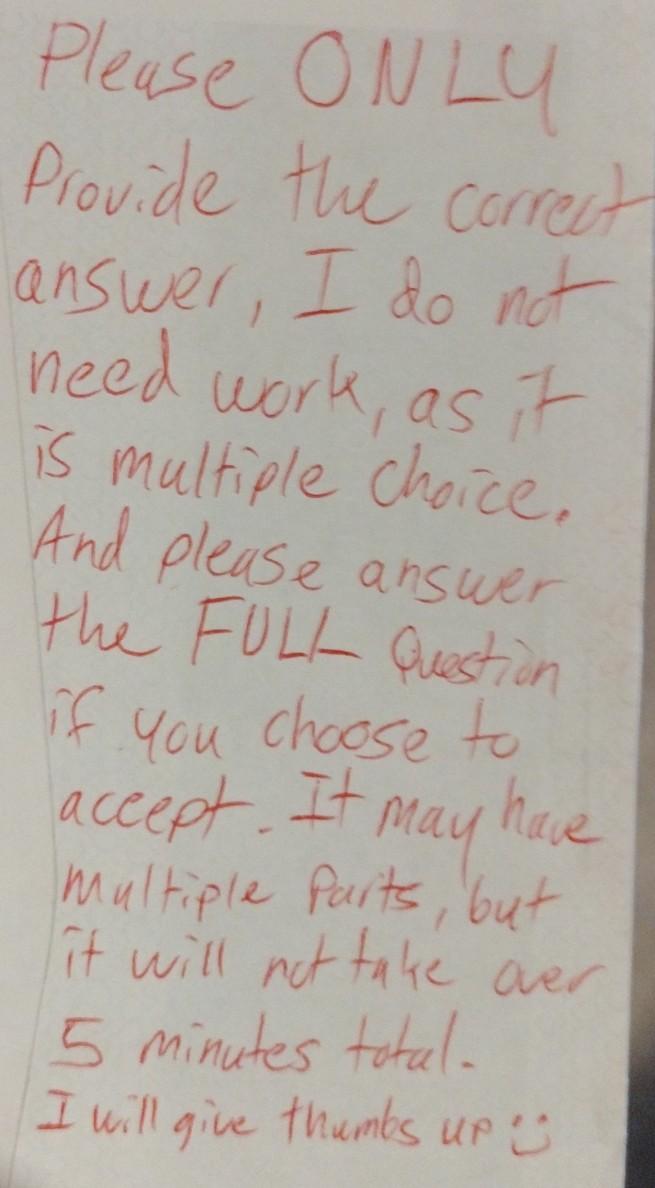 Please ONLY
Provide the correct
answer, I do not
need work, as it
is multiple choice.
And please answer
the FULL Question
if you choose to
accept. It may have
multiple Parts, but
it will not take over
5 minutes total.
I will give thumbs up :)